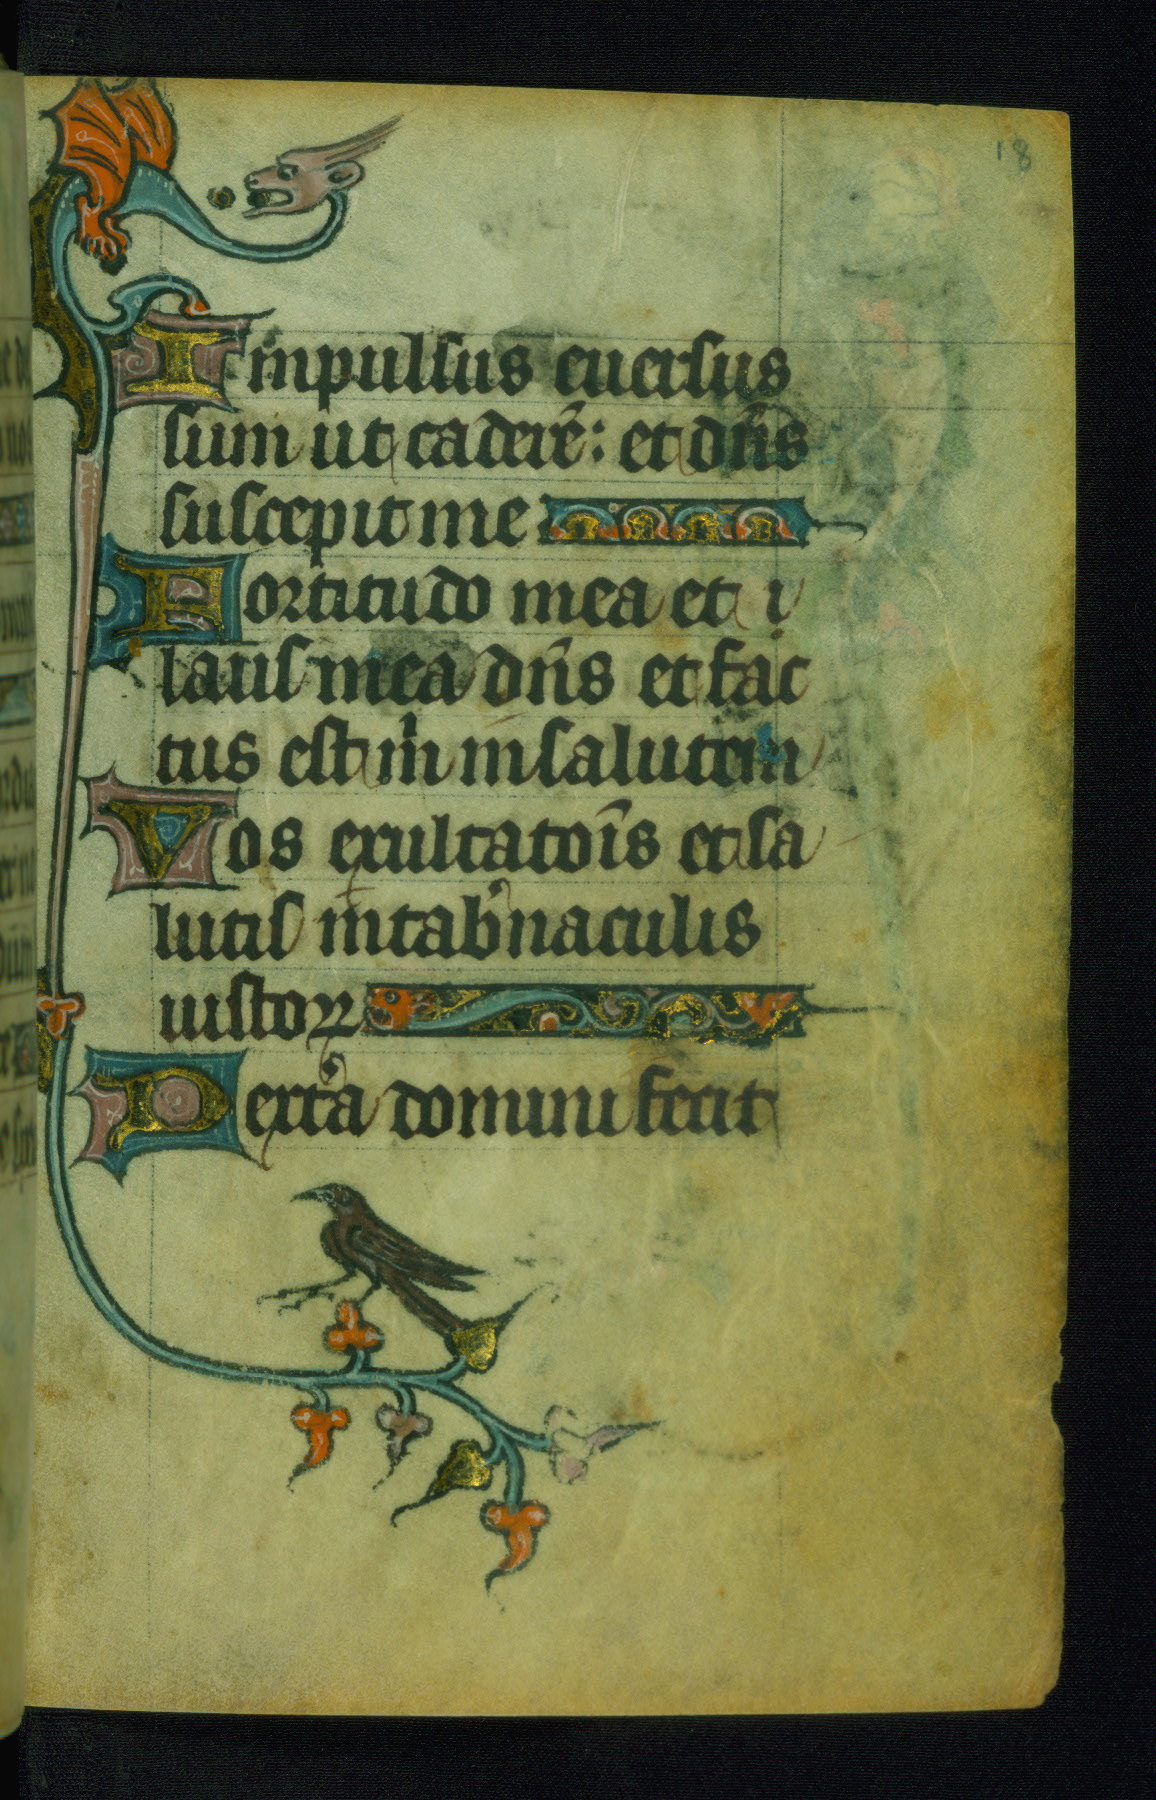 18
Impulsus euersus
sum ut caderē: et dn̄s
suscepit me
Fortitudo mea et i
latis mea dn̄s et fac
tus est m̄ in salutem
Vos exultatoīs et sa
lutis in tab̄naculis
iustoꝝ
Dext̾a domini fecit